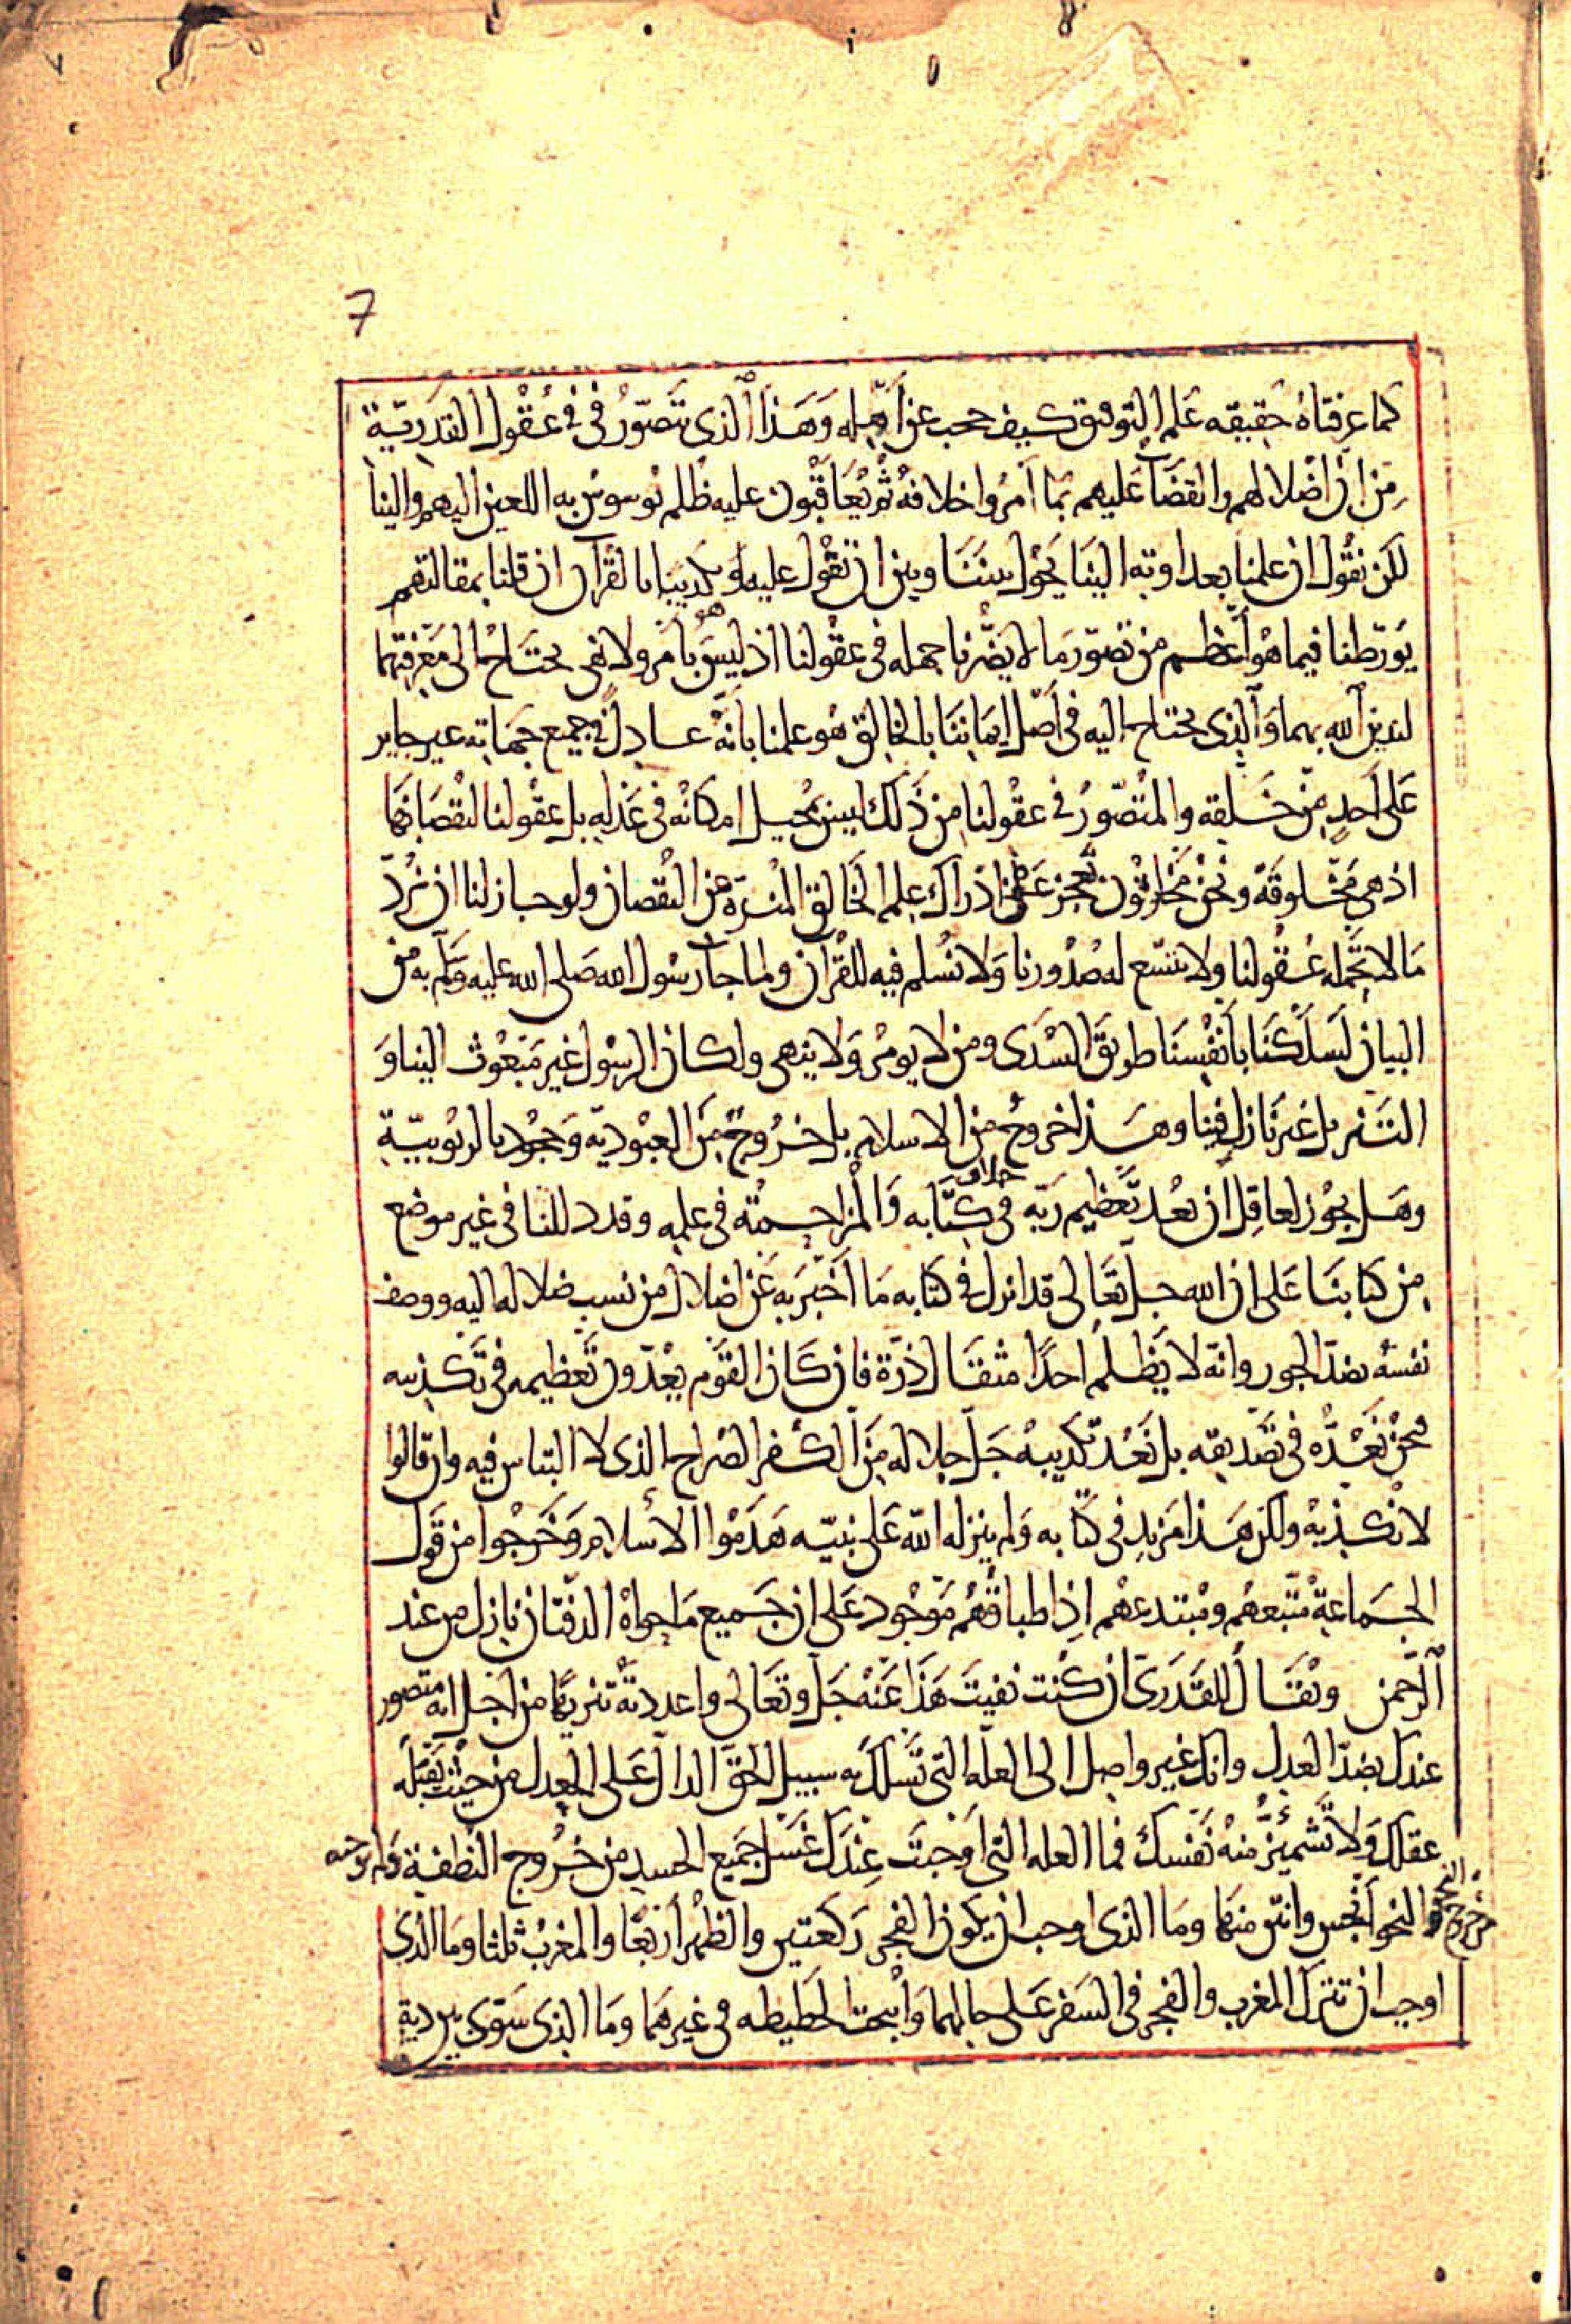 7
كما عرفناه حقيقه علم التوفيق كيف حجب عن اهله وَهَذا الذي تَصَوّرُ في في عُقول القَدَريّة
مِن انّ اضْلالهم والقضآ عَليهم بما اُمرُوا خلافهُ ثُم يُعَاقبُون عليه ظلم يُوسوسُ به اللعين اليهم والينا
لكن نقُول ان علمنا بعداوته الينا يَحُول بيننَا وبين ان نقول عليه او تكذيبنا بالقرآن ان قلنا بمقالتهم
يَورّطنا فيما هُو أعظم من تصوّر مَا لا يضّرنا جهله في عقُولنا اذ ليسَ هو بامر ولا نهي يحتاج الى مَعْرفتهما
لندين الله بهما وَالذي يحتاج اليه في اصْل ايمانِنَا بالخالِق هُو علمنا بانهُ عادلٌ في جميع جهاته غير جاير
عَلى أحدٍ مِن خَلقه والمُتصَوّرُ في عقُولنا من ذَلك ليسَ يُحيل امكانهُ في عَدْله بل عقُولنا لنقصَانهَا
اذ هي مَخلوقهً ونحن مخلوقُون تعجز عن ادراك علم الخالق المُنزّه عن النُقصان ولو جاز لنا ان نَرُدّ
مَا لا تحمله عُقُولنا ولا تتسع له صُدُورنا وَلا نُسلم فيه للقُرآن ولما جآ رسُول الله صَلى الله عليه وسلم به من
البيان لسَلكنَا بأنفُسنَا طريقَ السُدَى ومن لا يومُر وَلا ينهى ولكان الرسُول غير مَبعُوث الينا وَ
التَنزيل غير نَازل فينا وهَذا خروجٌ من الاسلام بل خرُوجٌ مِنَ العبُوديّه وَجحُود بالربُوبيّة
وهَل يجُوز لعاقِل ان يعُد تعظيم ربّه في خلاف كتَابه وَالمُزاحمةُ في علمه وقد دللنا في غير موضع
مِن كتابنَا عَلى ان الله جلّ تعَالى قد انزل في كتابه مَا أخبَرَ به عَن اضلال من نسب ضلاله اليه ووصف
نفسهُ بضدّ الجور وانّه لا يَظلمُ احدًا مثقال ذرّة فان كَان القوم يعُدّون تعظيمه في تكذيبه
فنحن نَعُدُّه في تصديقه بل نَعُد تكذيبهُ جَلّ جلاله مِنَ الكُفر الصُراح الذي لا التباس فيه وان قالوا
لا نكذبهُ ولكن هَذا مَزيد في كتابه وَلم ينزله الله عَلى نبيّه هَدَمُوا الاسْلام وَخَرجُوا من قَول
الجمَاعةِ متبعهُم ومُبتدعهُم اذِ اطباقُهُم مَوجُود عَلى ان جَميع مَا حواهُ الدفتان نازل من عند
الرّحمن ويُقال للقَدَرىّ ان كُنت نفيتَ هَذا عَنْهُ جَلّ وتعَالى واعددتهُ تنزيهًا من أجل انه متصور
عندك بضدّ العدل وانك غير واصِل الى العلّه التي تَسلك به سبيل الحقّ الدال عَلى العدل من حيث يقبله
عقلك وَلا تشمئزُّ منهُ نَفسك فما العله التي أوجبَت عِندَك غَسْل جميع الجسد من خُروج النطفة وَلم توجبه
من خروج النجو والنجو أنجس وانتن منها ومَا الذي اوجب ان يكون الفجر رَكعتين والظهُر أربعًا والمغربُ ثلثا ومَا الذي
اوجب ان تترك المغرب والفجر في السَفر عَلى حالهما وَأبيحت الحَطيطه في غيرهمَا ومَا الذي سَوّى بين دية